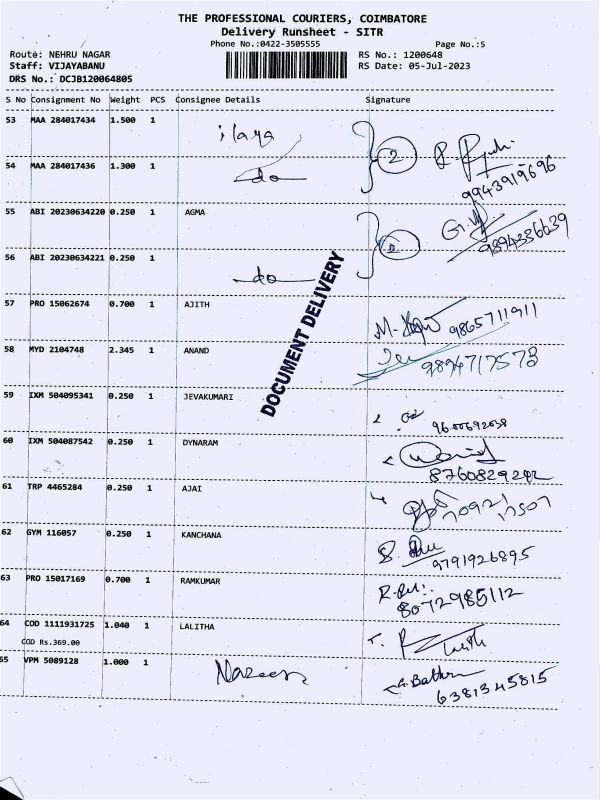 THE PROFESSIONAL COURIERS, COIMBATORE
Delivery Runsheet - SITR
Phone No.:0422-3505555 Page No.:5
Route: NEHRU NAGAR RS No.: 1200648
Staff: VIJAYABANU RS Date: 05-Jul-2023
DRS No.: DCJB120064805
S No Consignment No Weight PCS Consignee Details Signature
53 MAA 284017434 1.500 1 ilaya 2
54 MAA 284017436 1.300 1 do 9943919696
55 ABI 20230634220 0.250 1 AGMA
56 ABI 20230634221 0.250 1 do 9894336639
DOCUMENT DELIVERY
57 PRO 15062674 0.700 1 AJITH 9865711911
58 MYD 2104748 2.345 1 ANAND 9894717573
59 IXM 504095341 0.250 1 JEVAKUMARI
60 IXM 504087542 0.250 1 DYNARAM 8760829242
61 TRP 4465284 0.250 1 AJAI
62 GYM 116057 0.250 1 KANCHANA 9791926895
63 PRO 15017169 0.700 1 RAMKUMAR 8072985112
64 COD 1111931725 1.040 1 LALITHA
COD Rs.369.00
65 VPM 5089128 1.000 1 Nazeer 6381345815